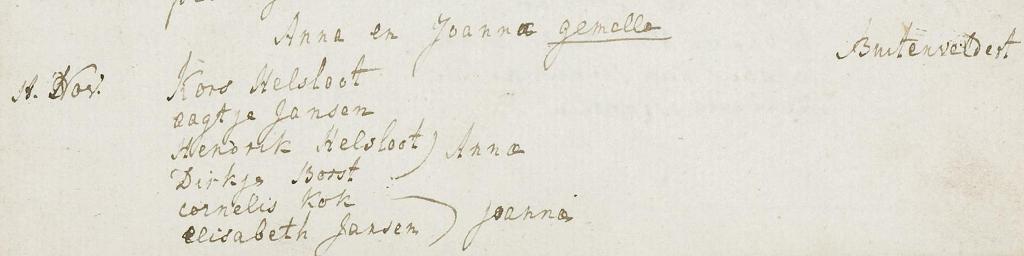 Anna en Joanna gemelle
Buitenveldert
Nov. Kors Helsloot
aagtje Jansen
Hendrik Helsloot ) Anna
Dirkje Borst
cornelis Kok
elisabeth Jansen ) joanna